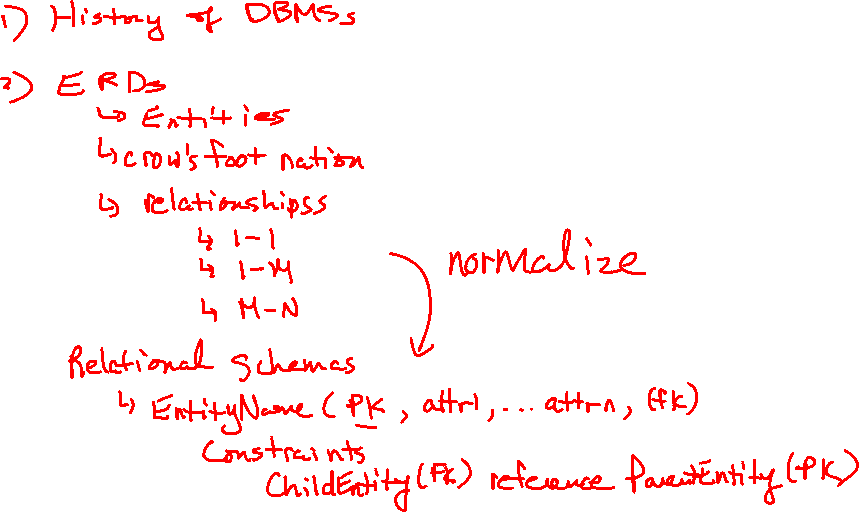 1) History of DBMSs
2) ERDs
↳ Entities
↳ crow's foot nation
↳ relationshipss
↳ 1-1
↳ 1-M
↳ M-N
normalize
Relational Schemas
↳ EntityName (PK, attr1, ... attrn, (fk)
Constraints
ChildEntity (FK) reference ParentEntity (PK)